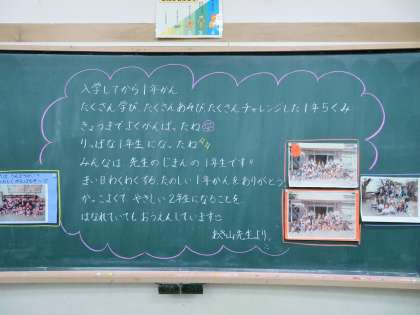 入学してから1年かん
たくさん学び たくさんあそび たくさんチャレンジした1年5くみ
きょうまでよくがんばったね
りっぱな1年生になったね
みんなは 先生のじまんの1年生です!!
まい日わくわくする、たのしい1年かんをありがとう
かっこよくて やさしい2年生になることを
はなれていても おうえんしています
あき山先生より。